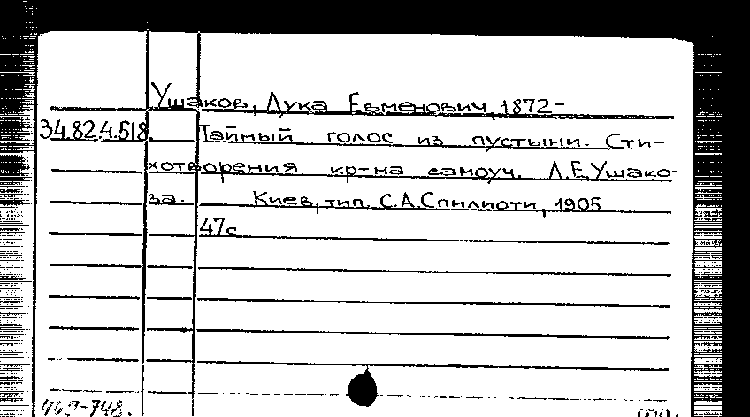 Ушаков, Лука Евменович, 1872-
34.82.4.518. Тайный голос из пустыни. Сти-
хотворения кр-на самоуч. Л.Е.Ушако-
ва. Киев, тип. С.А.Спилиоти, 1905
47с